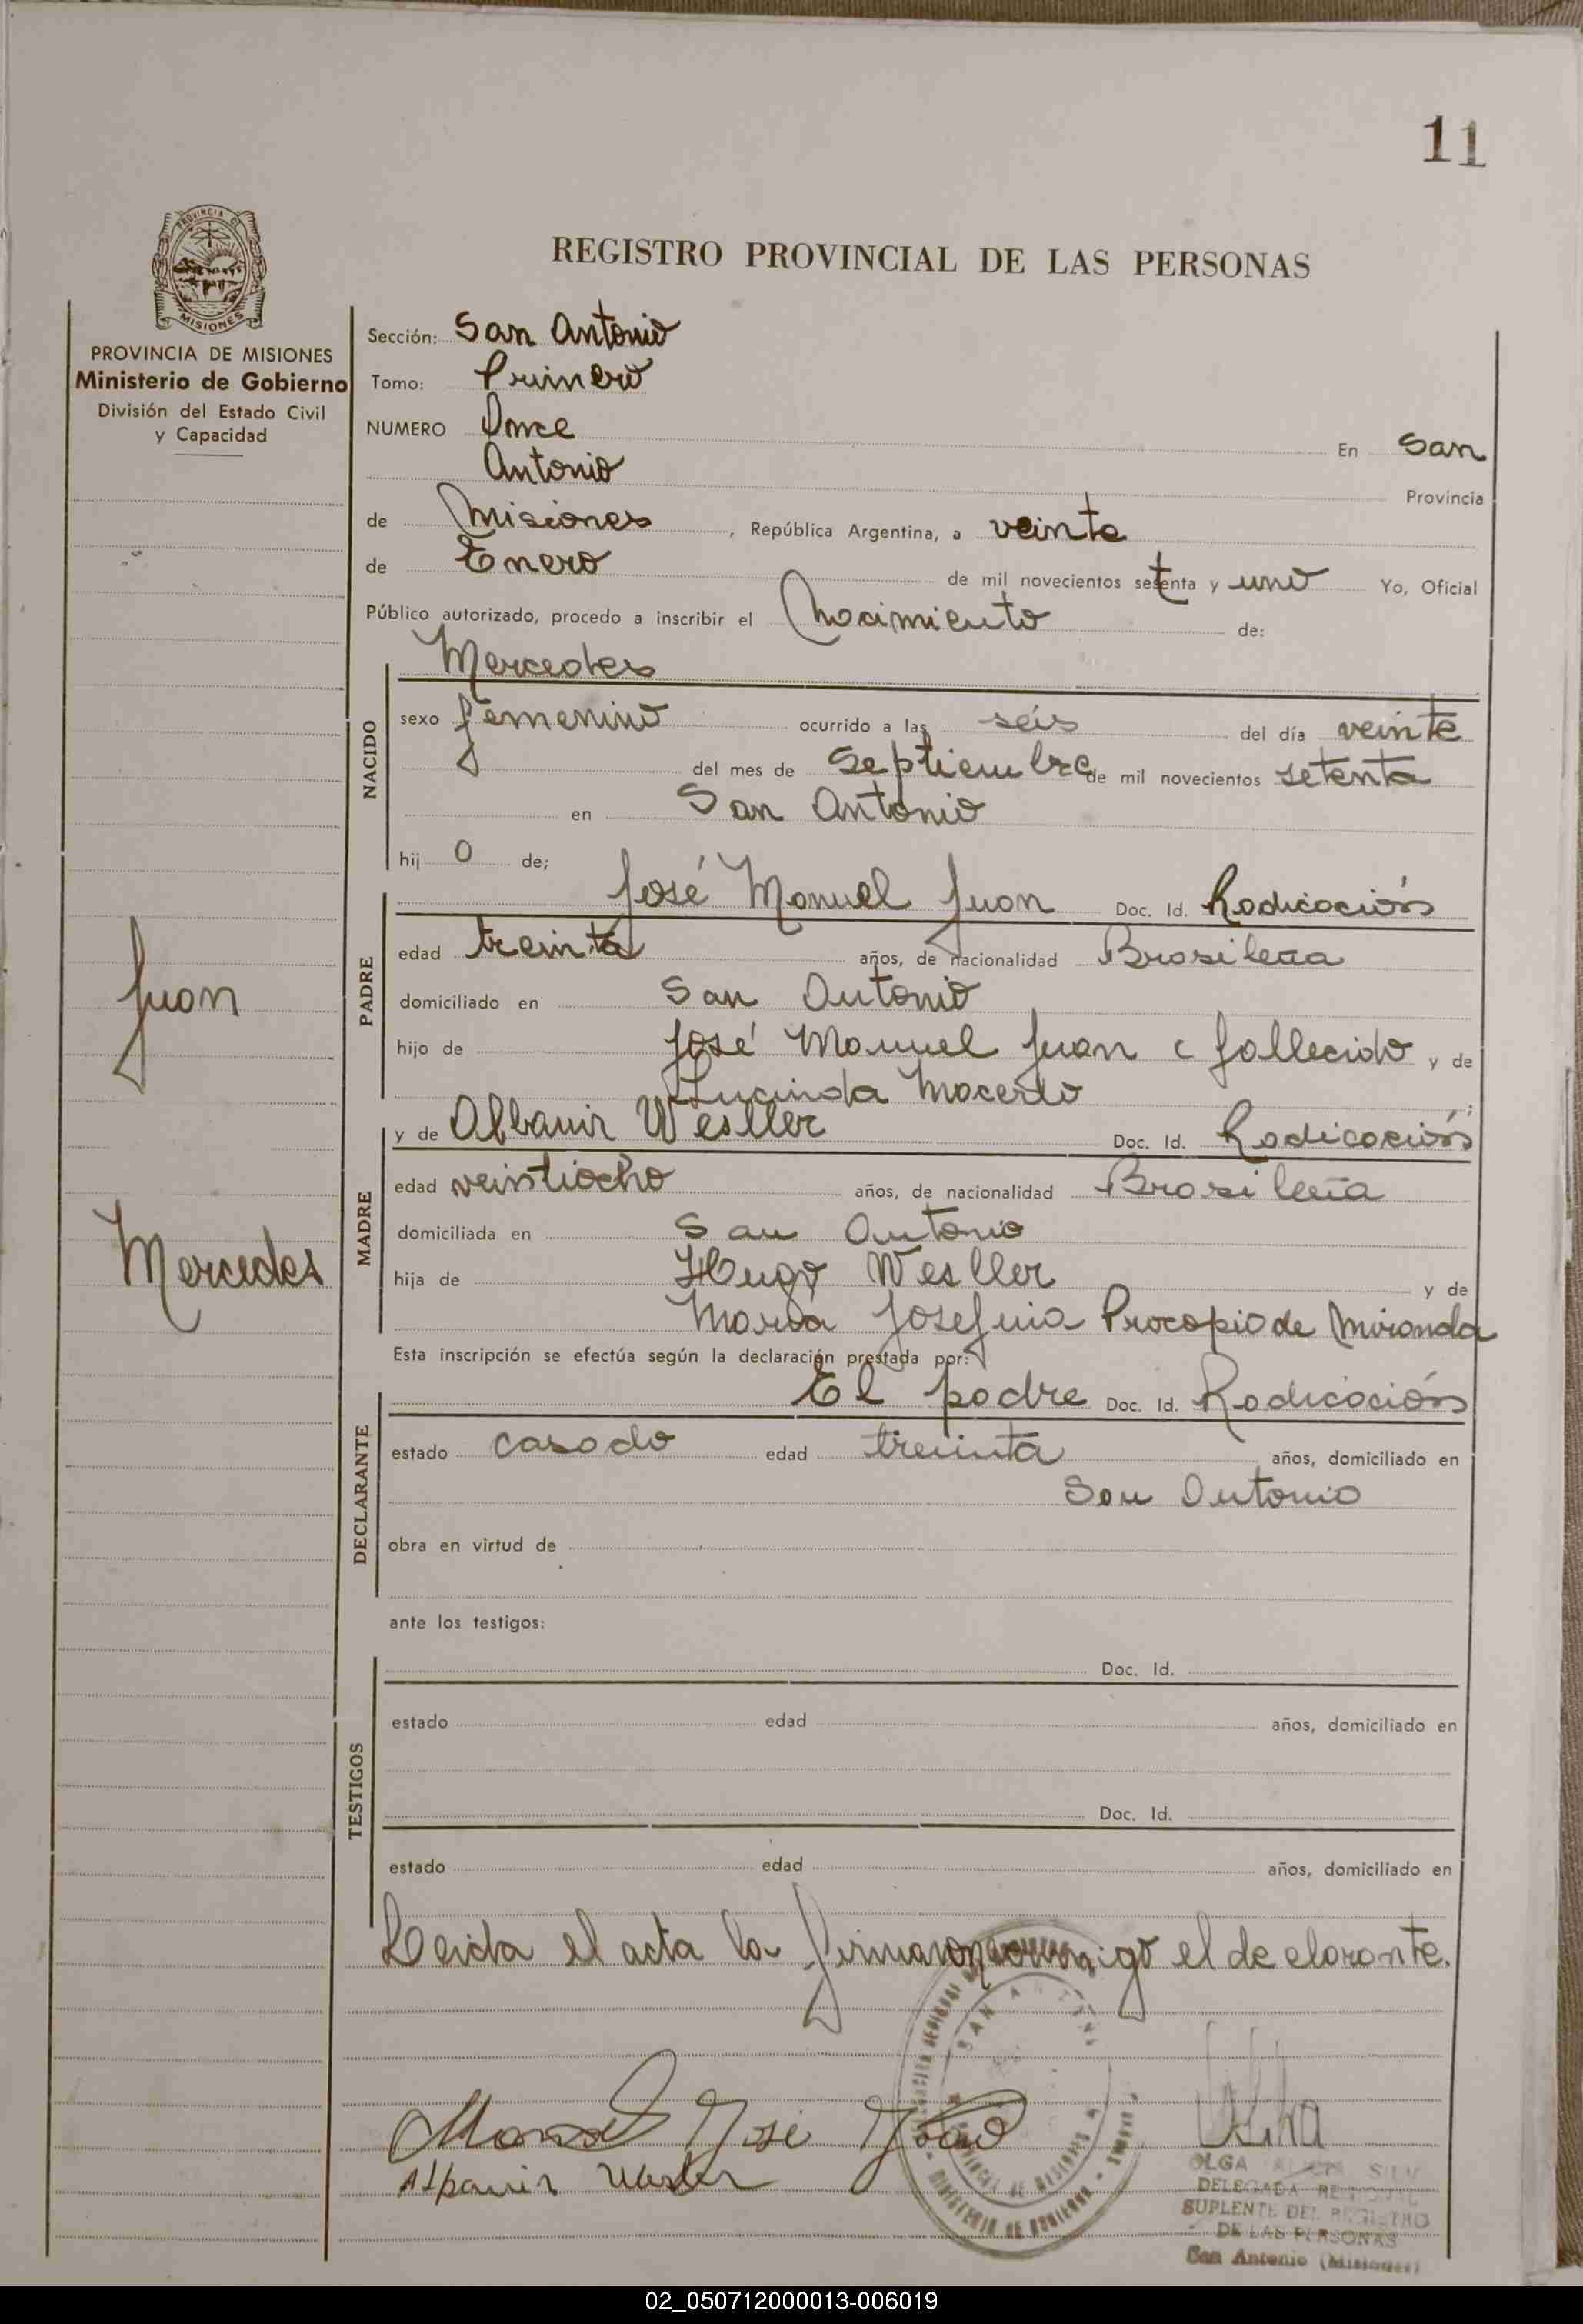 11
PROVINCIA DE
MISIONES
REGISTRO PROVINCIAL DE LAS PERSONAS
PROVINCIA DE MISIONES
Ministerio de Gobierno
División del Estado Civil
y Capacidad
Sección: San Antonio
Tomo: Primero
NUMERO Once En San
Antonio Provincia
de Misiones, República Argentina, a veinte
de Enero de mil novecientos setenta y uno Yo, Oficial
Público autorizado, procedo a inscribir el Nacimiento de:
Mercedes
NACIDO
sexo femenino ocurrido a las seis del día veinte
del mes de Septiembre de mil novecientos setenta
en San Antonio
hij o de;
José Manuel Juan Doc. Id. Radicación
PADRE
edad treinta años, de nacionalidad Brasilera
domiciliado en San Antonio
hijo de José Manuel Juan c fallecido y de
Lucinda Macerlo;
y de Albanir Wesller Doc. Id. Radicación
MADRE
edad veintiocho años, de nacionalidad Brasilera
domiciliada en San Antonio
hija de Hugo Wesller y de
Maria Josefina Procopio de Miranda
Juan
Mercedes
Esta inscripción se efectúa según la declaración prestada por:
El padre Doc. Id. Radicación
DECLARANTE
estado casado edad treinta años, domiciliado en
San Antonio
obra en virtud de
ante los testigos:
TESTIGOS
Doc. Id.
estado edad años, domiciliado en
Doc. Id.
estado edad años, domiciliado en
Leida el acta la firmaron conmigo el declarante.
Manoel José João
Albanir Wesler
SAN ANTONIO
PROVINCIA DE MISIONES
MINISTERIO DE GOBIERNO
OLGA ALICIA SILV
DELEGADA REGIONAL
SUPLENTE DEL REGISTRO
DE LAS PERSONAS
San Antonio (Misiones)
02_050712000013-006019